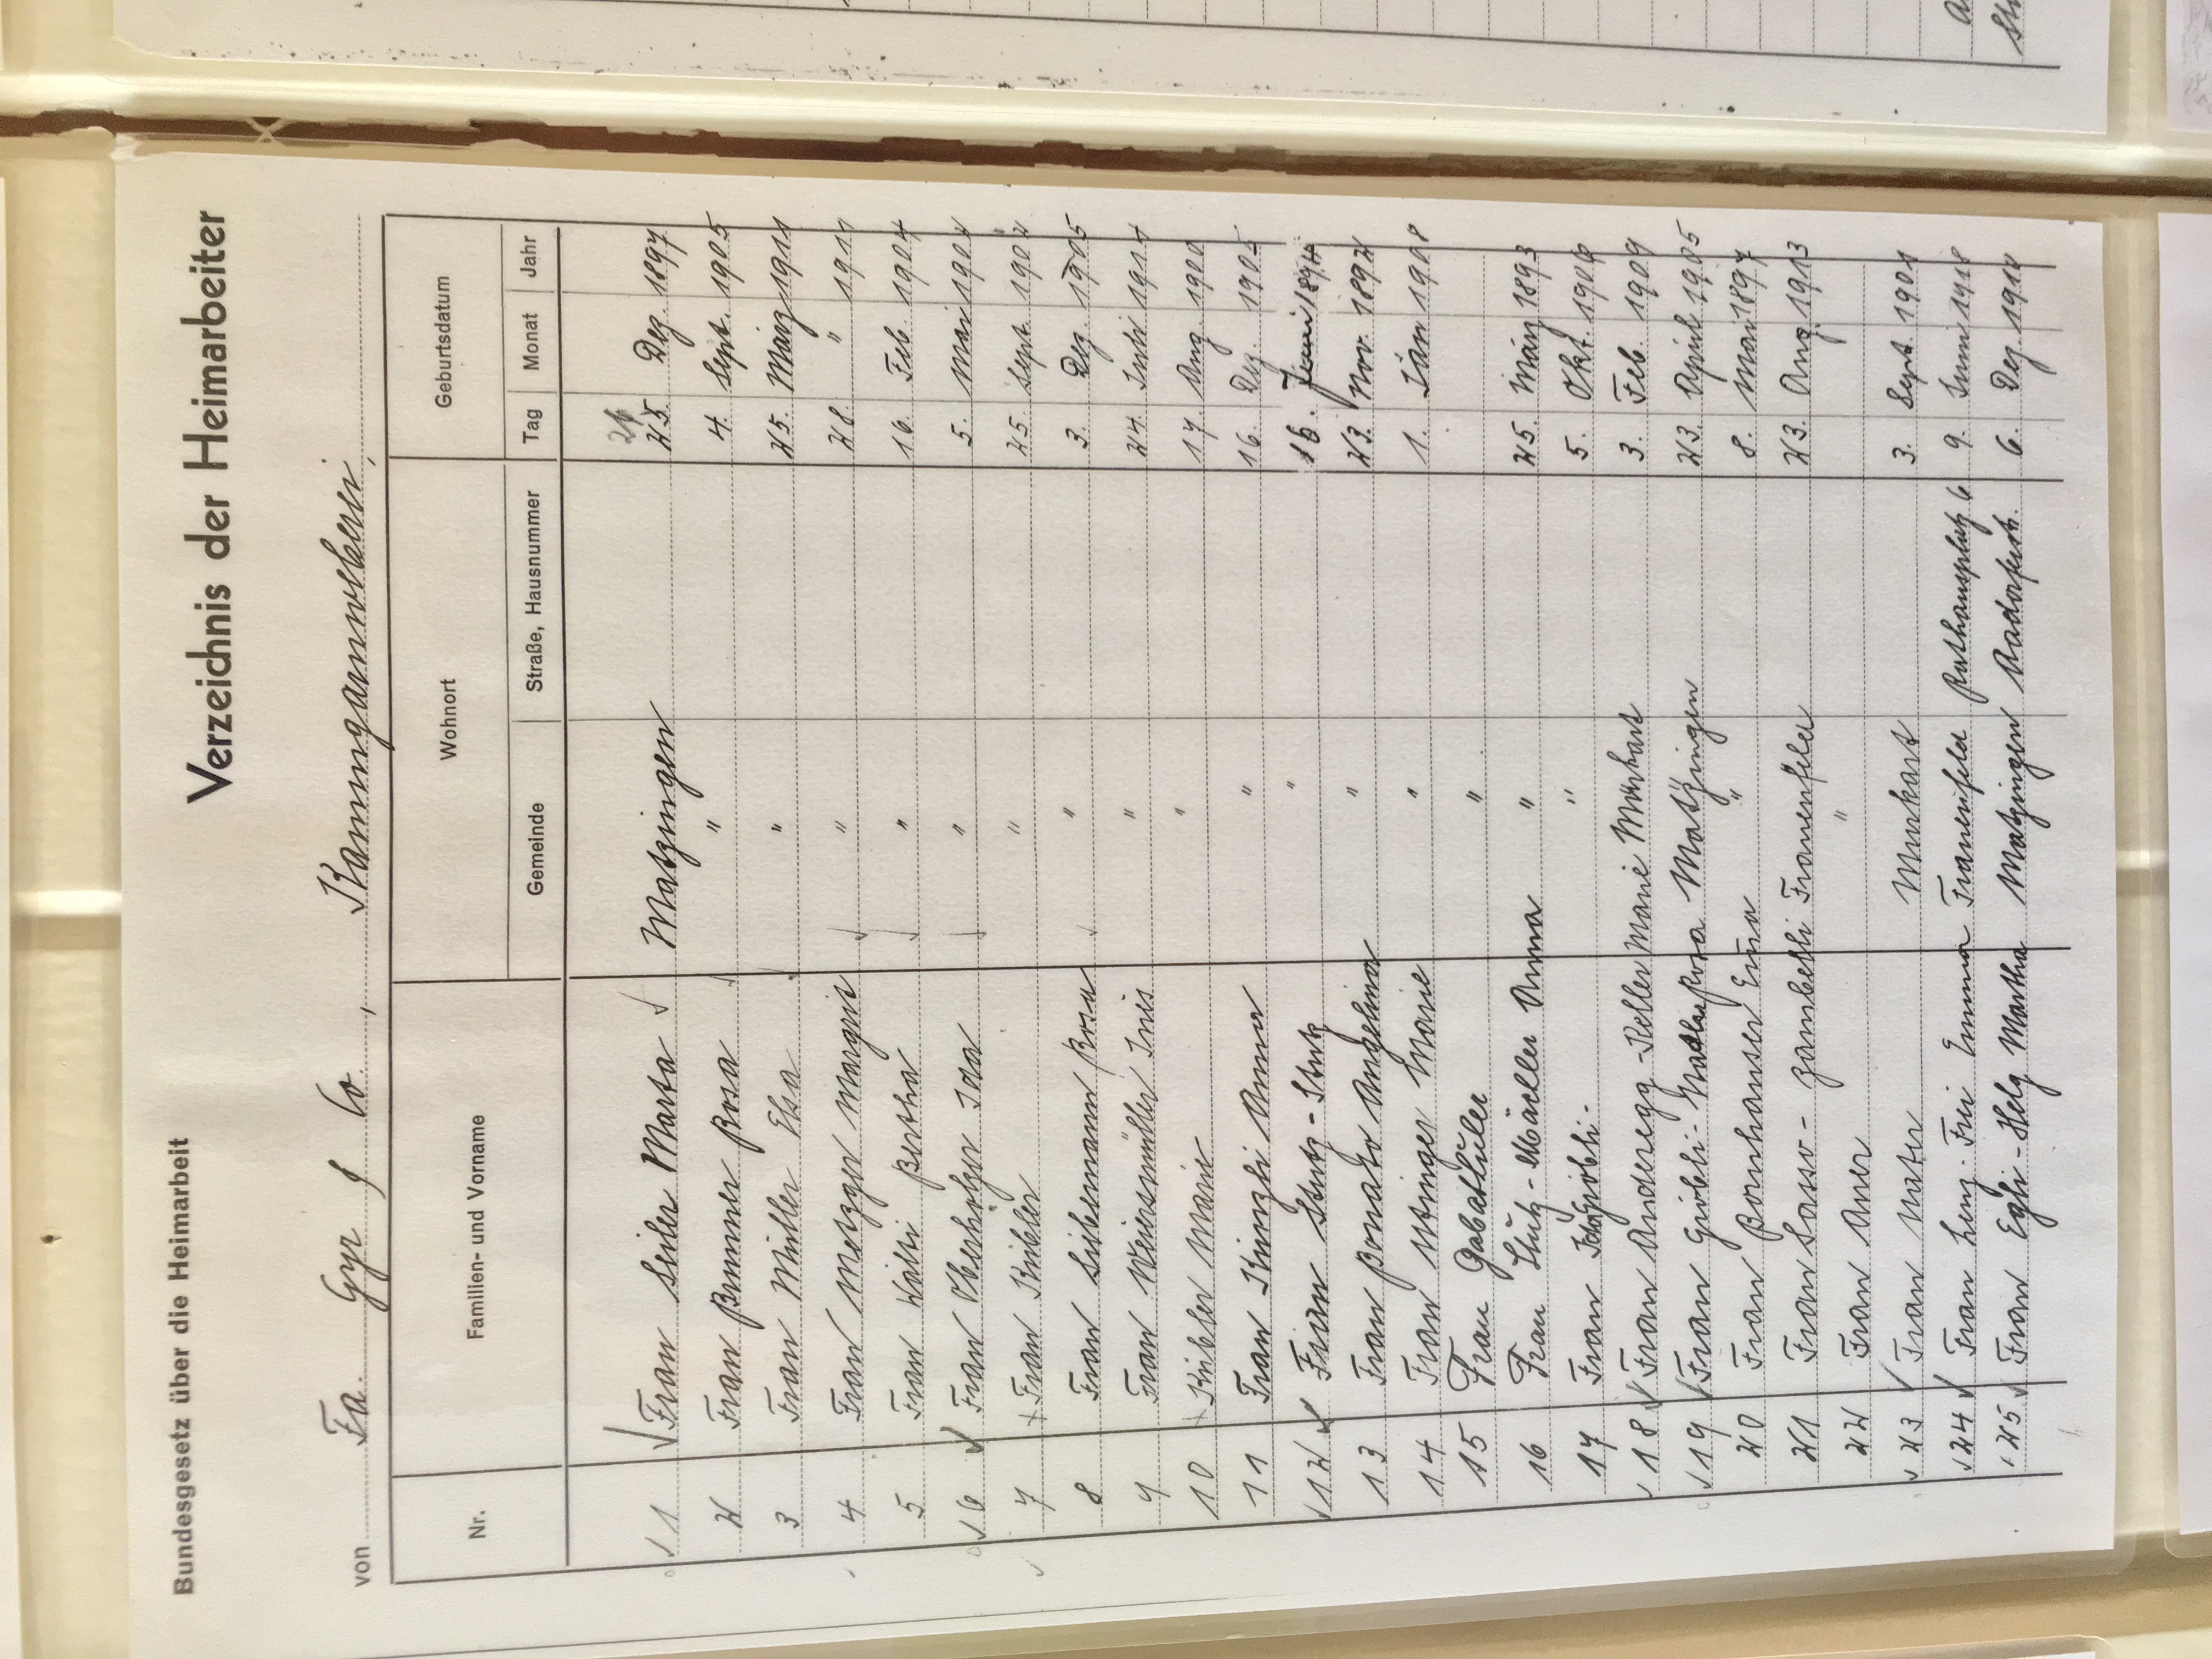 Bundesgesetz über die Heimarbeit
Verzeichnis der Heimarbeiter
von Fa. Gyr & Co., Kammgarnweberei,
Nr. Familien- und Vorname Wohnort Geburtsdatum
Gemeinde Straße, Hausnummer Tag Monat Jahr
1 Frau Seiler Marta Matzingen 26 25. Dez. 1897
2 Frau Bommer Rosa " 4. Sept. 1905
3 Frau Müller Elsa " 25. März 1911
4 Frau Metzger Margrit " 28. " 1911
5 Frau Wälti Bertha " 16. Feb. 1904
6 Frau Oberholzer Ida " 5. Mai 1902
7 Frau Kübler " 25. Sept. 1902
8 Frau Siebenmann Rosa " 3. Dez. 1905
9 Frau Weiersmüller Inis " 24. Juli 1914
10 Kübler Marie " 17. Aug. 1900
11 Frau Künzli Anna " 16. Dez. 1905
12 Frau Stutz-Stutz " 16. Juni
13 Frau Bonato Angelina " 23. Nov. 1892
14 Frau Utzinger Marie " 1. Jan 1908
15 Frau Gabathuler "
16 Frau Stutz-Mächler Anna " 25. März 1893
17 Frau Grübli- " 5. Okt. 1906
18 Frau Anderegg-Keller Marie Murkart 3. Feb. 1909
19 Frau Grübli- Rosa Matzingen 23. April 1905
20 Frau Bornhauser Erna " 8. Mai 1897
21 Frau Sasso-Zambelli Frauenfeld 23. Aug. 1913
22 Frau Auer "
23 Frau Murkart 3. Sept. 1901
24 Frau Lenz-Frei Emma Frauenfeld Rathausplatz 6 9. Juni 1918
25 Frau Egli-Holz Martha Matzingen 6. Dez. 1910